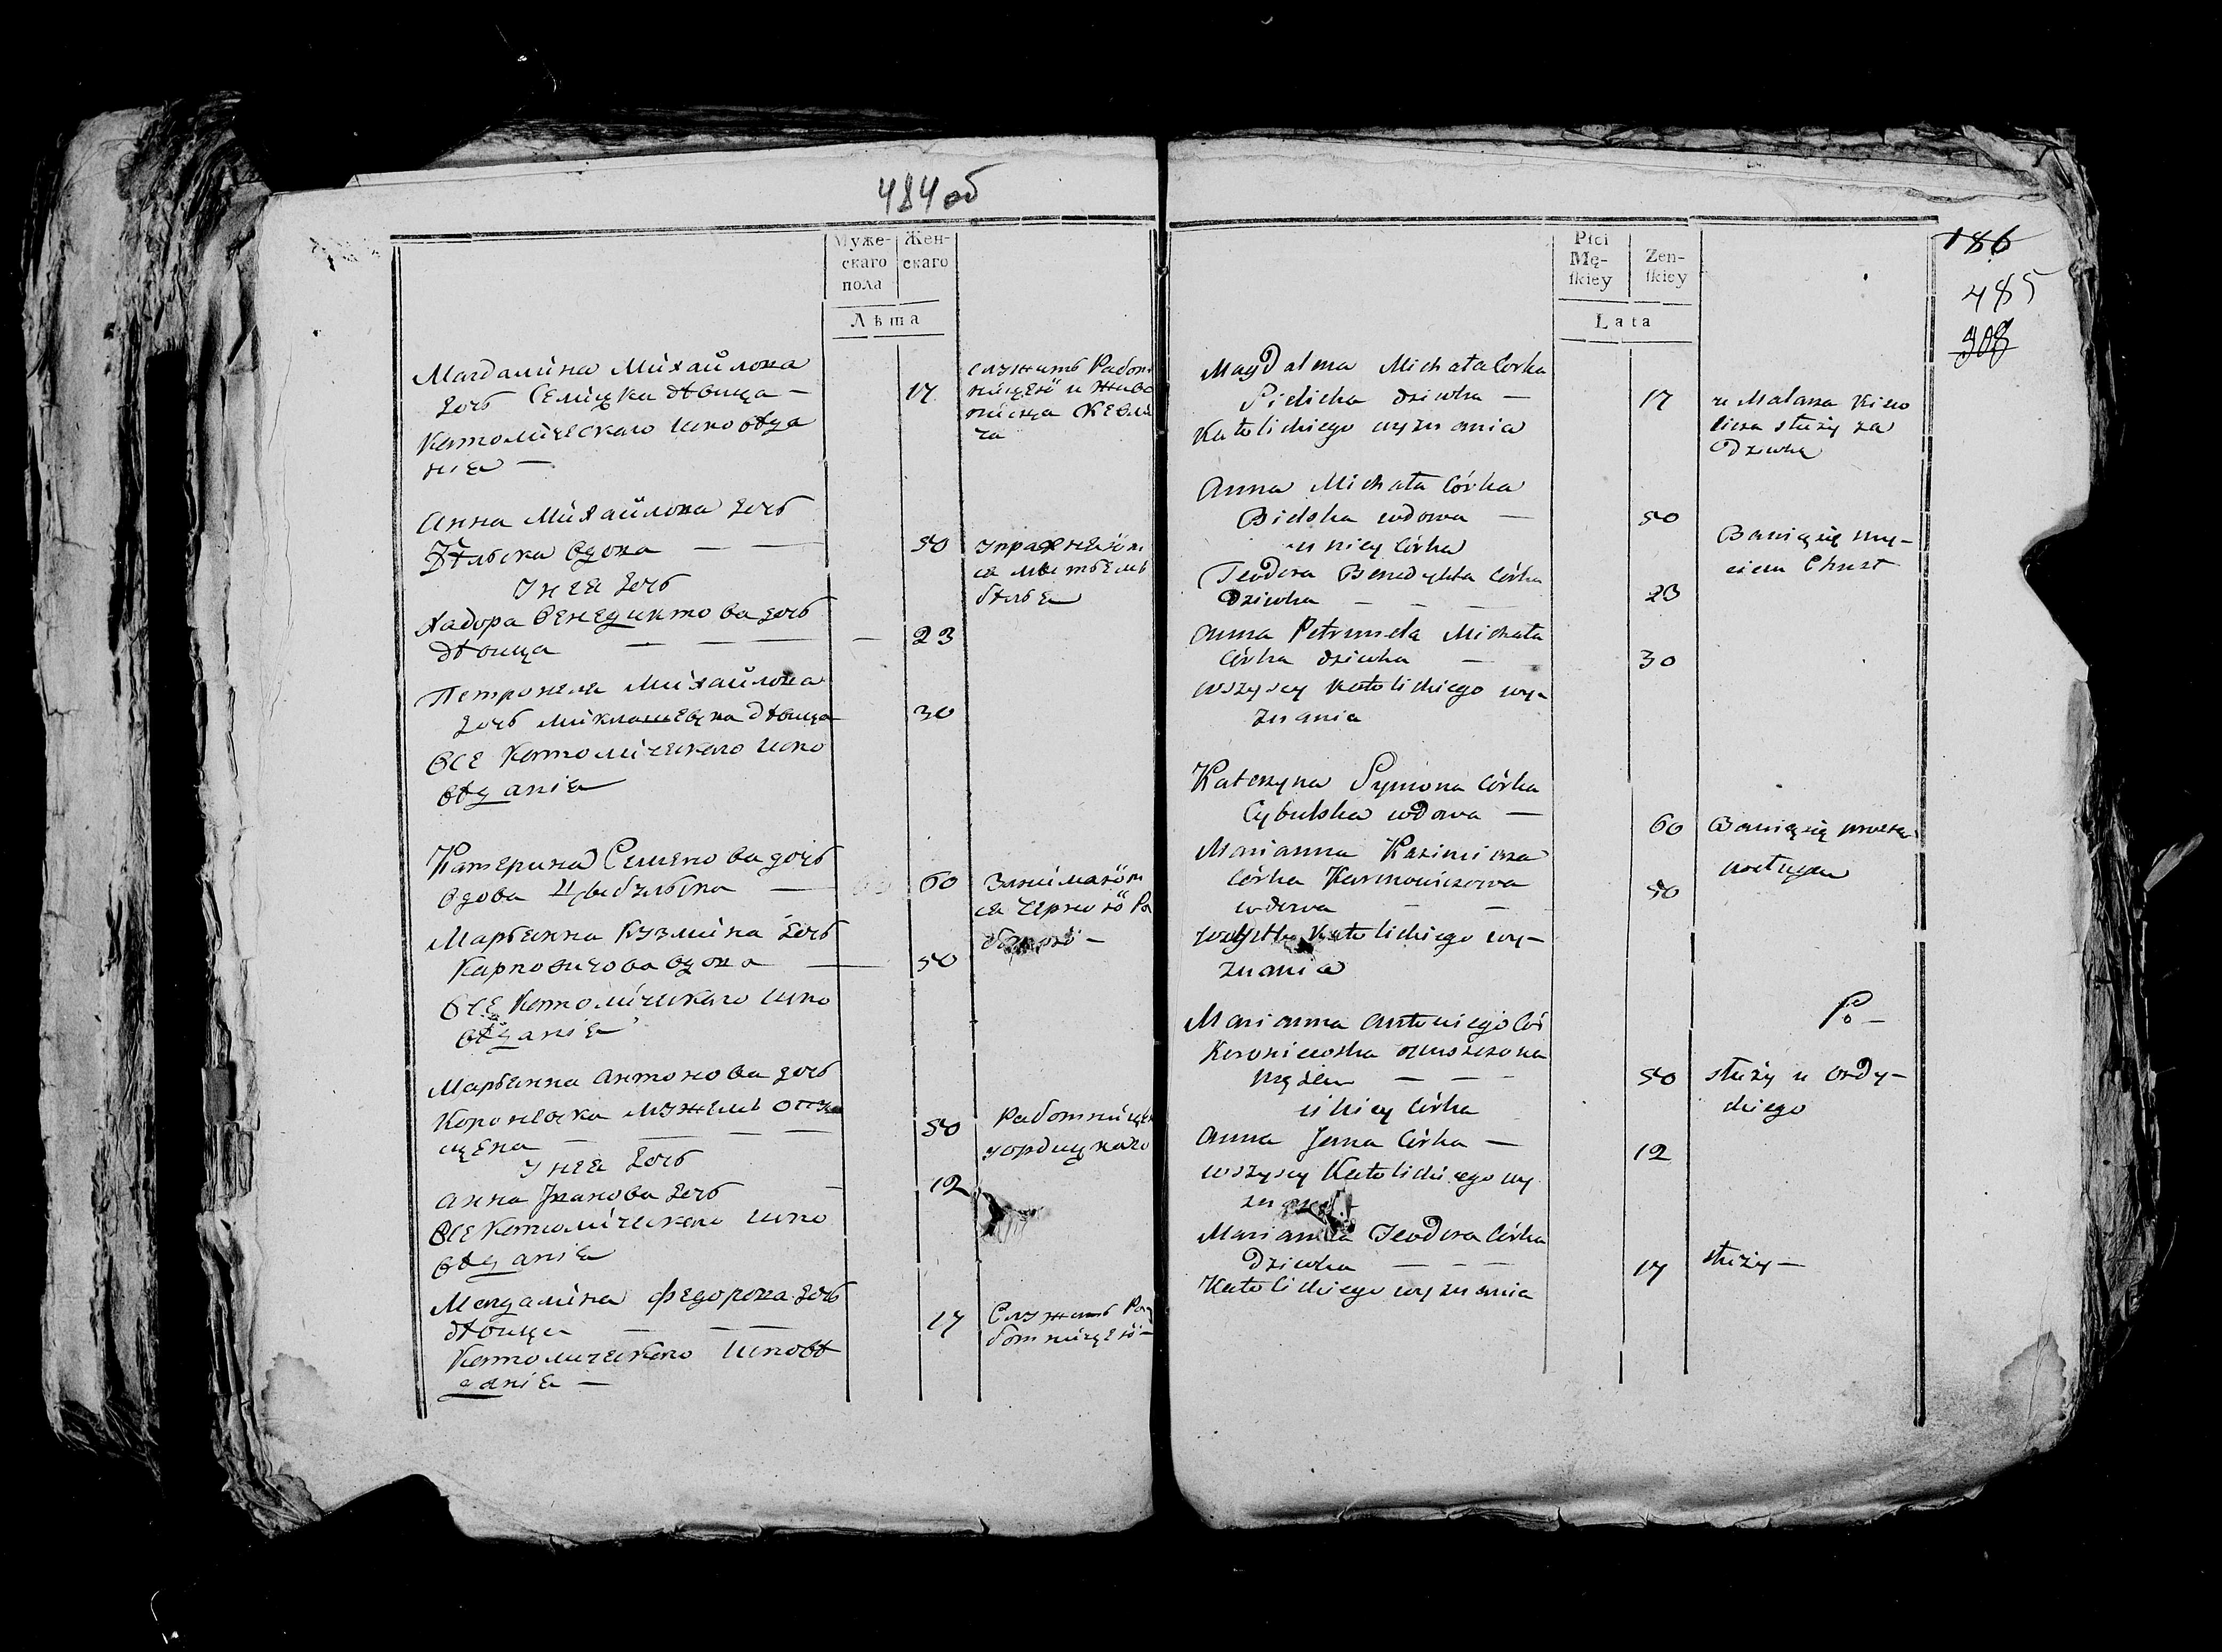 484 об
Муже-
скаго
пола
Жен-
скаго
Лѣта
Магдалина Михайлова
дочь Селицка дѣвица —
Католическаго исповѣда
нія —
17
служитъ Работ
ницею и живо
писца
ча
Анна Михайлова дочь
Бѣльска вдова — —
50
упражняют
ся мытьемь
бѣлья
У нея дочь
Ѳадора Венедиктова дочь
дѣвица — — —
23
Петронеля Михайлова
дочь дѣвица
30
все Католическаго испо
вѣданія
Катерина Семенова дочь
вдова Цыбульска —
60
Занимают
ся черною Ра
ботою —
Марьянна Кузмина дочь
Карповичова вдова —
50
все Католическаго испо
вѣданія
Марьянна Антонова дочь
Короневска мужемь опу
щена — — — —
50
Работницею
У нея дочь
Анна Иванова дочь —
12
все Католическаго испо
вѣданія
Магдалина Федорова дочь
дѣвица — — —
17
Служитъ Ра
ботницею —
Католическаго исповѣ
данія —
Płci
Mę-
ſkiey
Żen-
ſkiey
Lata
186
485
308
Magdalena Michała Corka
Sielicka dziewka —
Katolickiego wyznania
17
u Malarza
służy za
Dziewkę
Anna Michała Córka
Bielska wdowa —
50
Bawią się my-
ciem Chust
u niey Córka
Teodora Benedykta Córka
Dziewka — — —
23
Anna Petrunela Michała
Córka dziewka —
30
wszyscy Katolickiego wy-
znania
Katerzyna Symona Córka
Cybulska wdowa —
60
Bawią się
Marianna Kazimierza
Córka Karmowiczowa
wdowa — —
50
Katolickiego wy-
znania
Po —
Marianna Antoniego Cór
Koroniewska opuszczona
mężem — — —
50
służy u Ordy-
ckiego
u niey Córka
Anna Jana Córka —
12
wszyscy Katolickiego wy
Marianna Teodora Córka
Dziewka — — —
17
służy —
Katolickiego wyznania